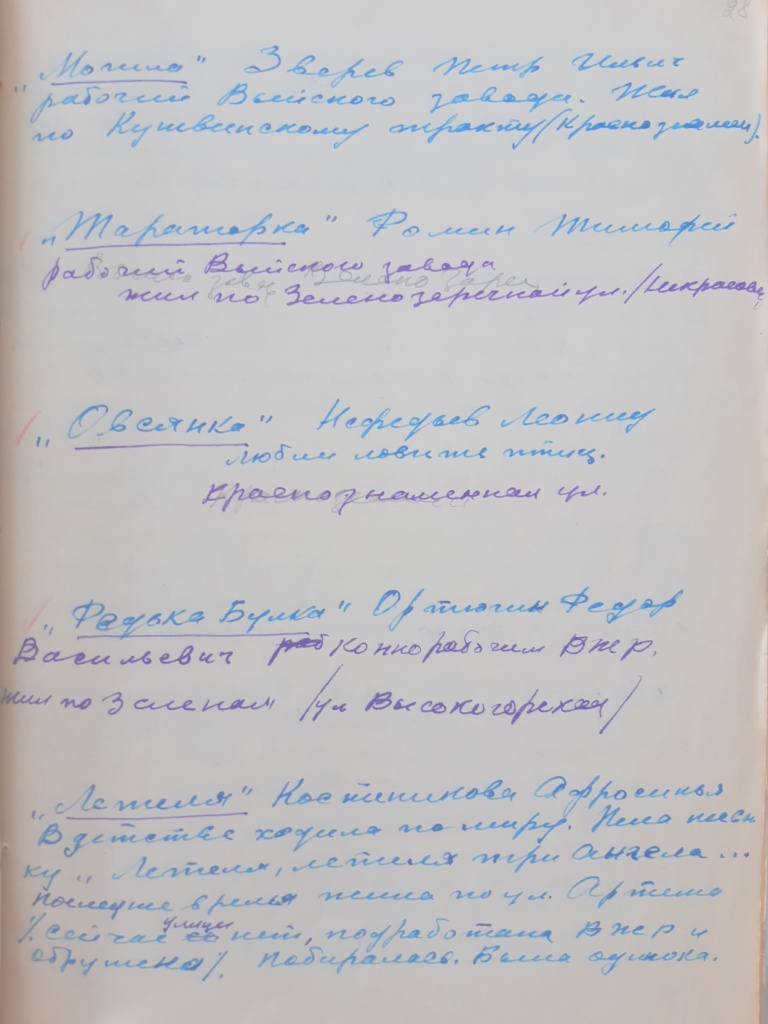 28
„Могила" Зверев Петр Ильич
рабочий Выйского завода. Жил
по Кушвинскому тракту (Краснознамен).
„Тараторка" Фомин Тимофей
рабочий Выйского завода
жил по Зеленозаречной ул. /Некрасова
„Овсянка" Нефедьев Леонид
любил ловить птиц.
Краснознаменная ул.
„Федька Булка" Ортюгин Федор
Васильевич раб коннорабочим ВЖР.
жил по Зеленой /ул Высокогорская/
„Летеля" Костюникова Афросинья
В детстве ходила по миру. Пела песен
ку „Летеля, летеля три ангела...
последние время жила по ул. Артема
/. сейчас улицы нет, подработана ВЖР и
обрушена/. Побиралась. Была одинока.